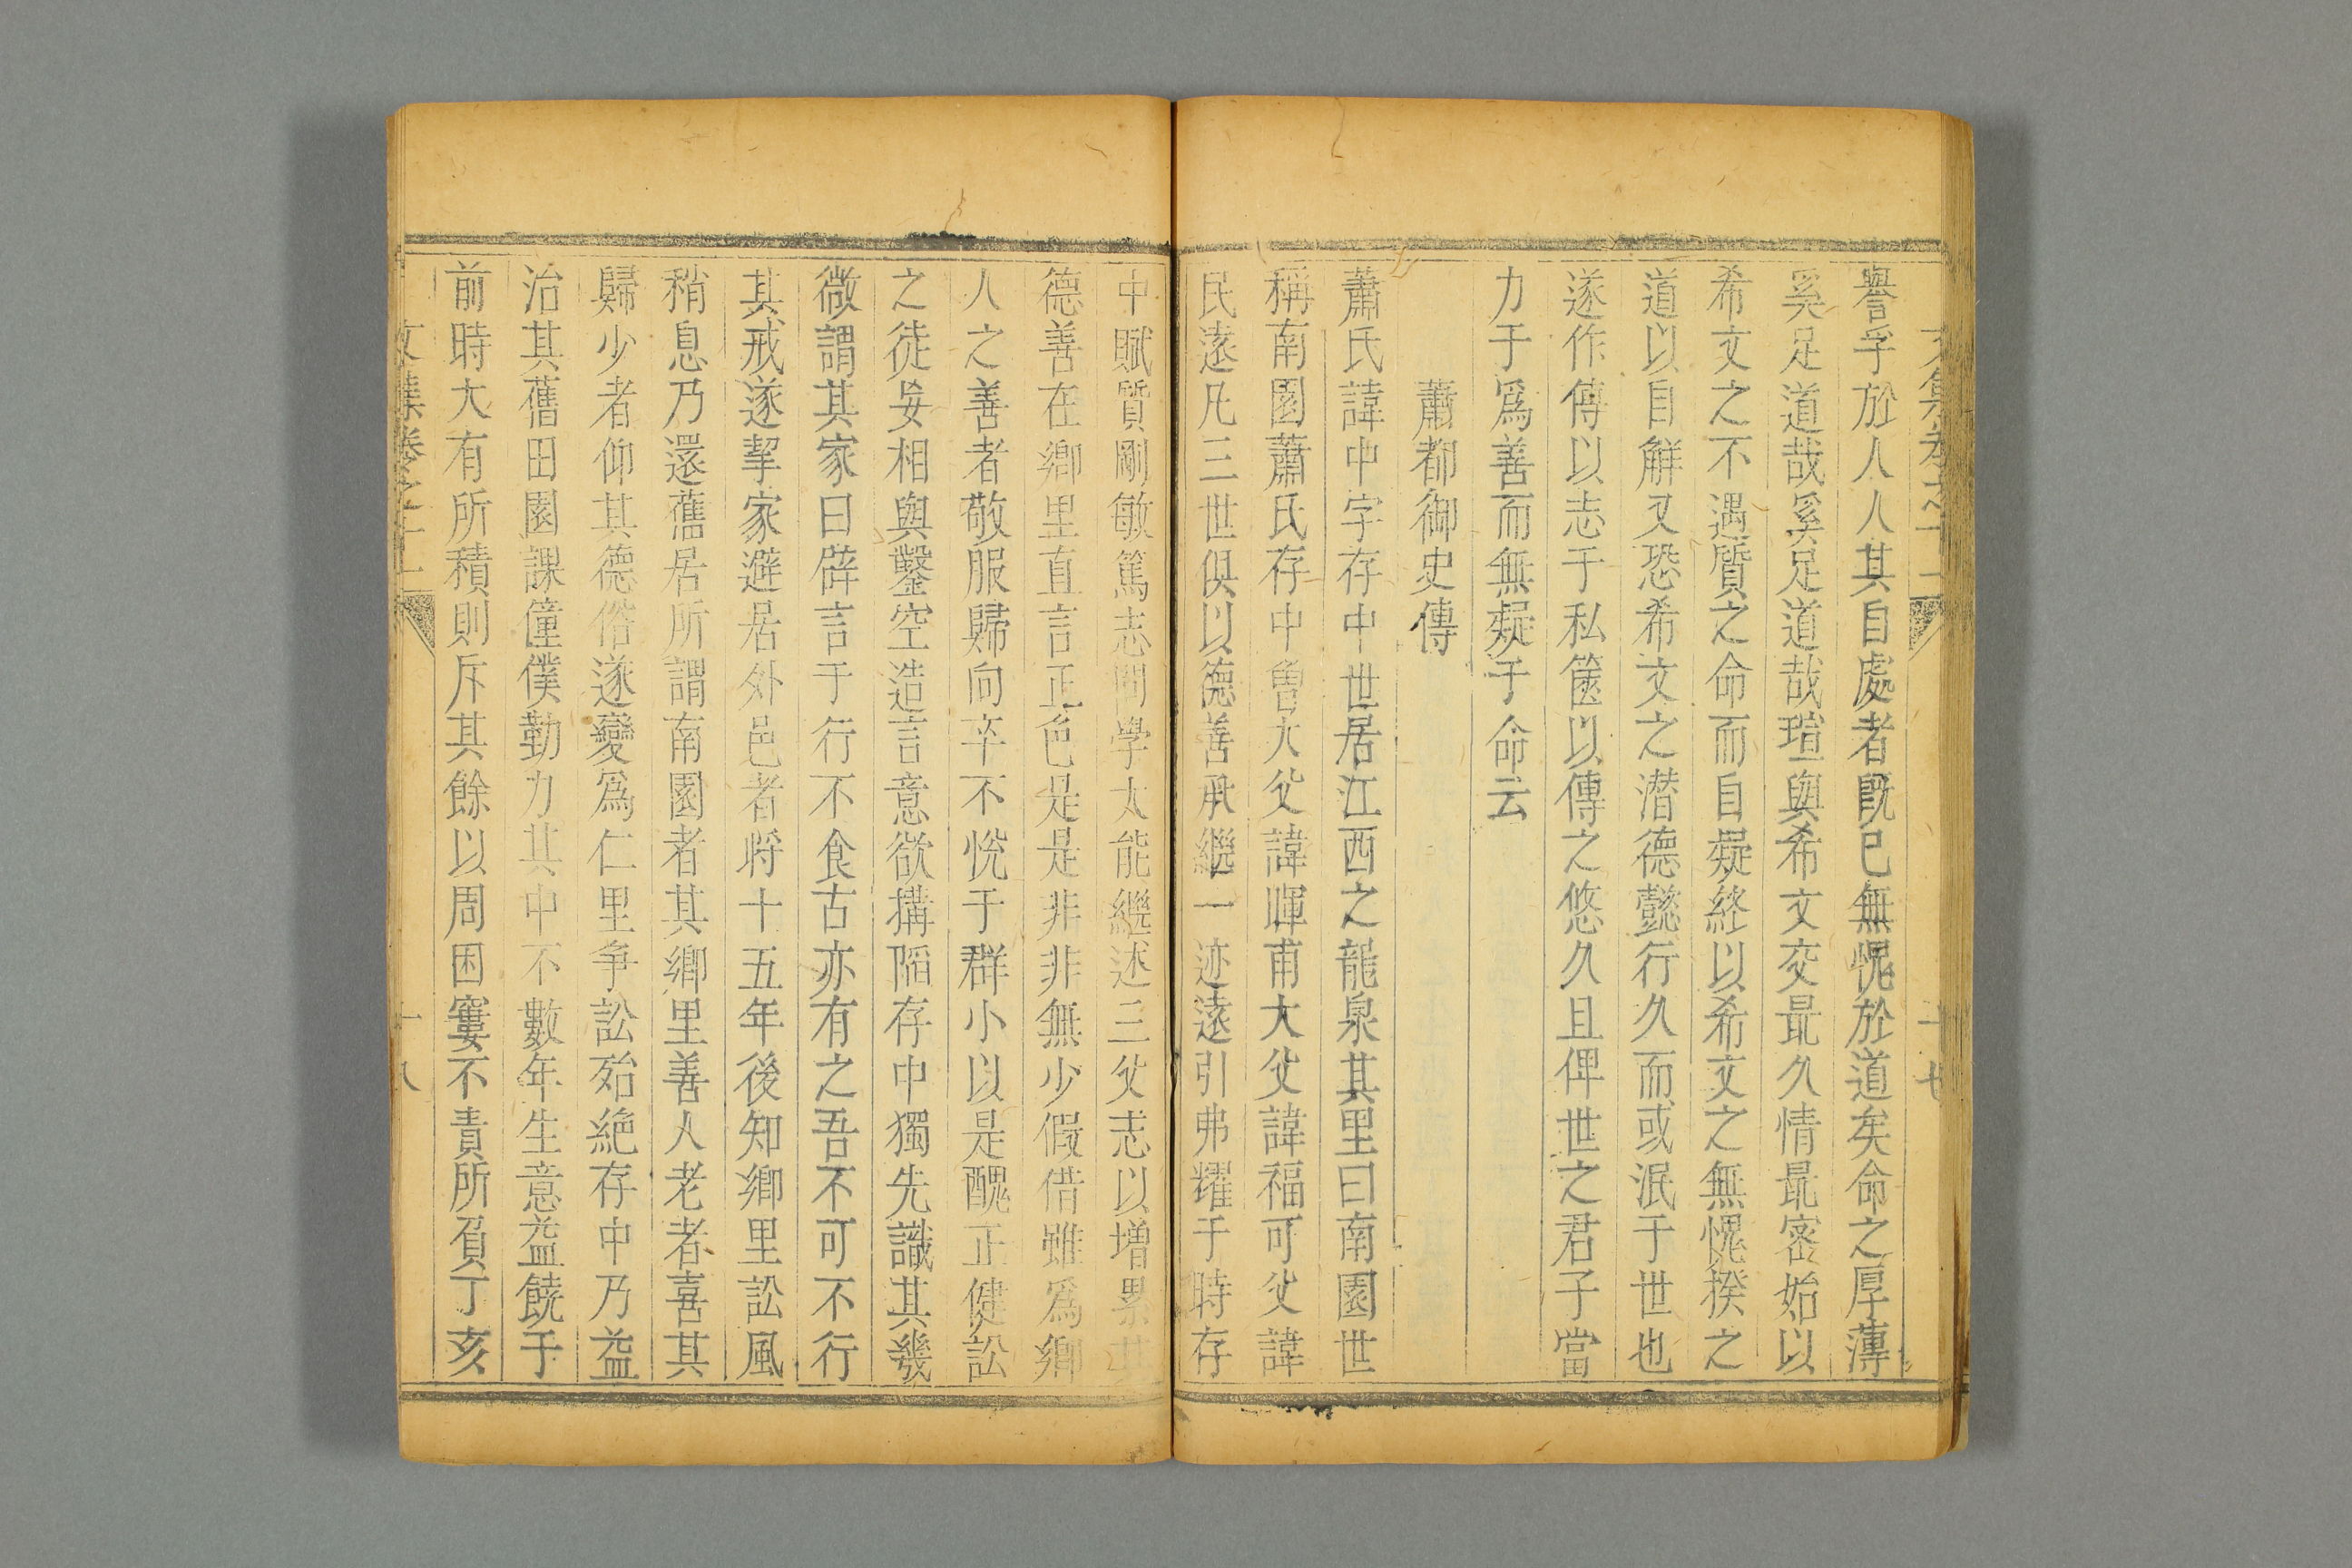 譽孚於人人其自處者旣已無愧於道矣命之厚薄
奚足道哉奚足道哉瑄與希文交最久情最密始以
希文之不遇質之命而自疑終以希文之無愧揆之
道以自解又恐希文之潜德懿行久而或泯于世也
遂作傳以志于私篋以傳之悠久且俾世之君子當
力于爲善而無疑于命云
蕭都御史傳
蕭氏諱中字存中世居江西之龍泉其里曰南園世
稱南園蕭氏存中曾大父諱暉甫大父諱福可父諱
民遠凡三世俱以德善承繼一迹遠引弗耀于時存
中賦質剛敏篤志問學大能繼述三父志以增累其
德善在鄉里直言正色是是非非無少假借雖爲鄉
人之善者敬服歸向卒不恱于群小以是醜正健訟
之徒妄相與鑿空造言意欲搆陷存中獨先識其幾
微謂其家曰辟言于行不食古亦有之吾不可不行
其戒遂挈家避居外邑者將十五年後知鄉里訟風
稍息乃還舊居所謂南園者其鄉里善人老者喜其
歸少者仰其德俗遂變爲仁里爭訟殆絶存中乃益
治其舊田園課僮僕勤力其中不數年生意益饒于
前時大有所積則斥其餘以周困窶不責所負丁亥
文集卷之十二
十八